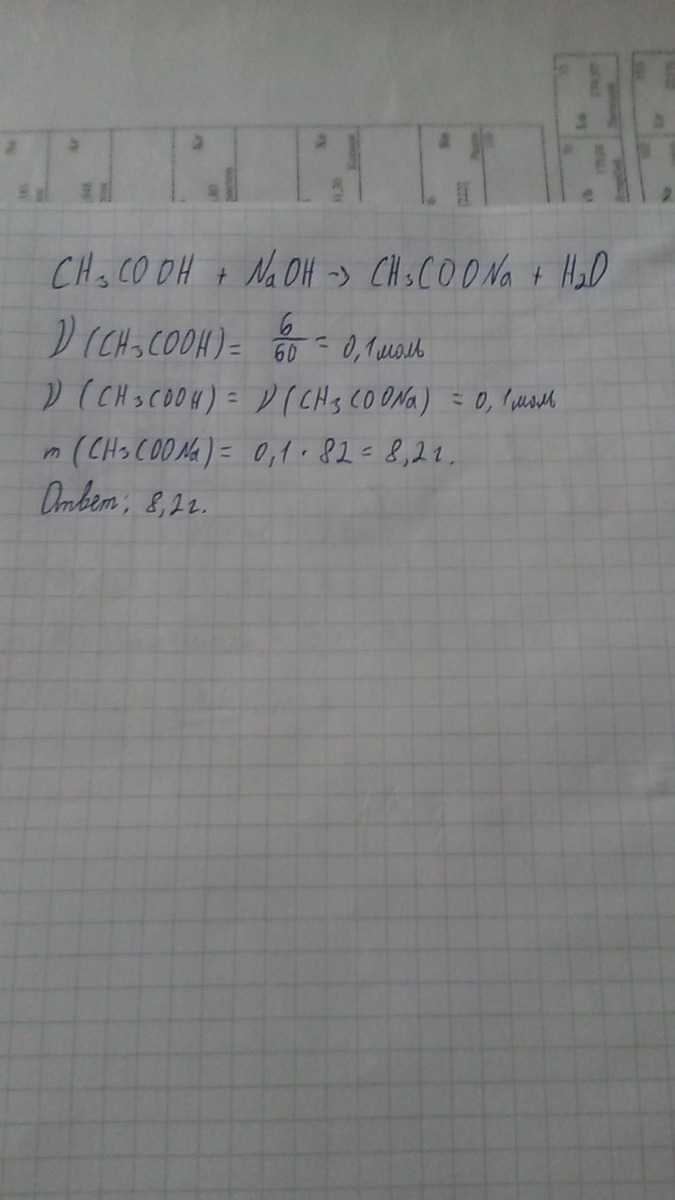 CH₃COOH + NaOH → CH₃COONa + H₂O
ν (CH₃COOH) = 6/60 = 0,1 моль
ν (CH₃COOH) = ν (CH₃COONa) = 0,1 моль
m (CH₃COONa) = 0,1 · 82 = 8,2 г.
Ответ: 8,2 г.